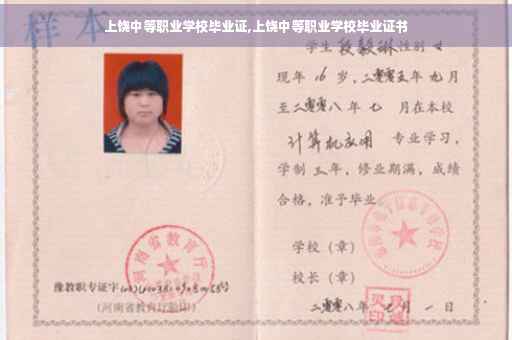 上饶中等职业学校毕业证,上饶中等职业学校毕业证书
样本
学生 段毅琳 性别 女
现年 16 岁,二零零五年 九 月
至二零零八年 七 月在本校
计算机应用 专业学习,
学制 三 年,修业期满,成绩
合格,准予毕业
学校(章)
校长(章)
河南省教育厅
豫教职专证字
(河南省教育厅验印)
二零零八年 七 月 一 日